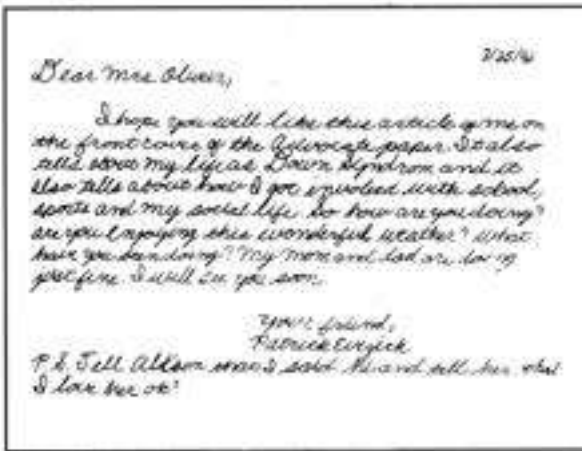 Dear Mrs Oliver,
I hope you will like this article of me on
the front cover of the Advocate paper. It also
tells about my life as Down Syndrom and it
also tells about how I got envolved with school,
sports and my social life. So how are you doing?
are you enjoying this wonderful weather? What
have you been doing? My mom and dad are doing
just fine. I will see you soon.
Your friend,
Patrick
P.S. Tell Allison that I said Hi and tell her that
I love her ok!